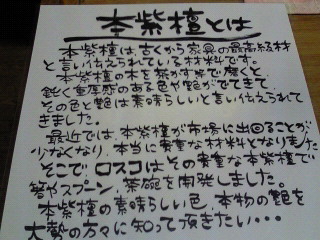 本紫檀とは
本紫檀は、古くから家具の最高級材
と言い伝えられている材料です。
本紫檀の木を茶がす米で磨くと、
鋭く重厚感のある色や艶がでてきて、
その色と艶は素晴らしいと言い伝えられて
きました。
最近では、本紫檀が市場に出回ることが
少なくなり、本当に貴重な材料となりました
そこで、ロスコはその貴重な本紫檀で
箸やスプーン、茶碗を開発しました。
本紫檀の素晴らしい色、本物の艶を
大勢の方々に知って頂きたい・・・